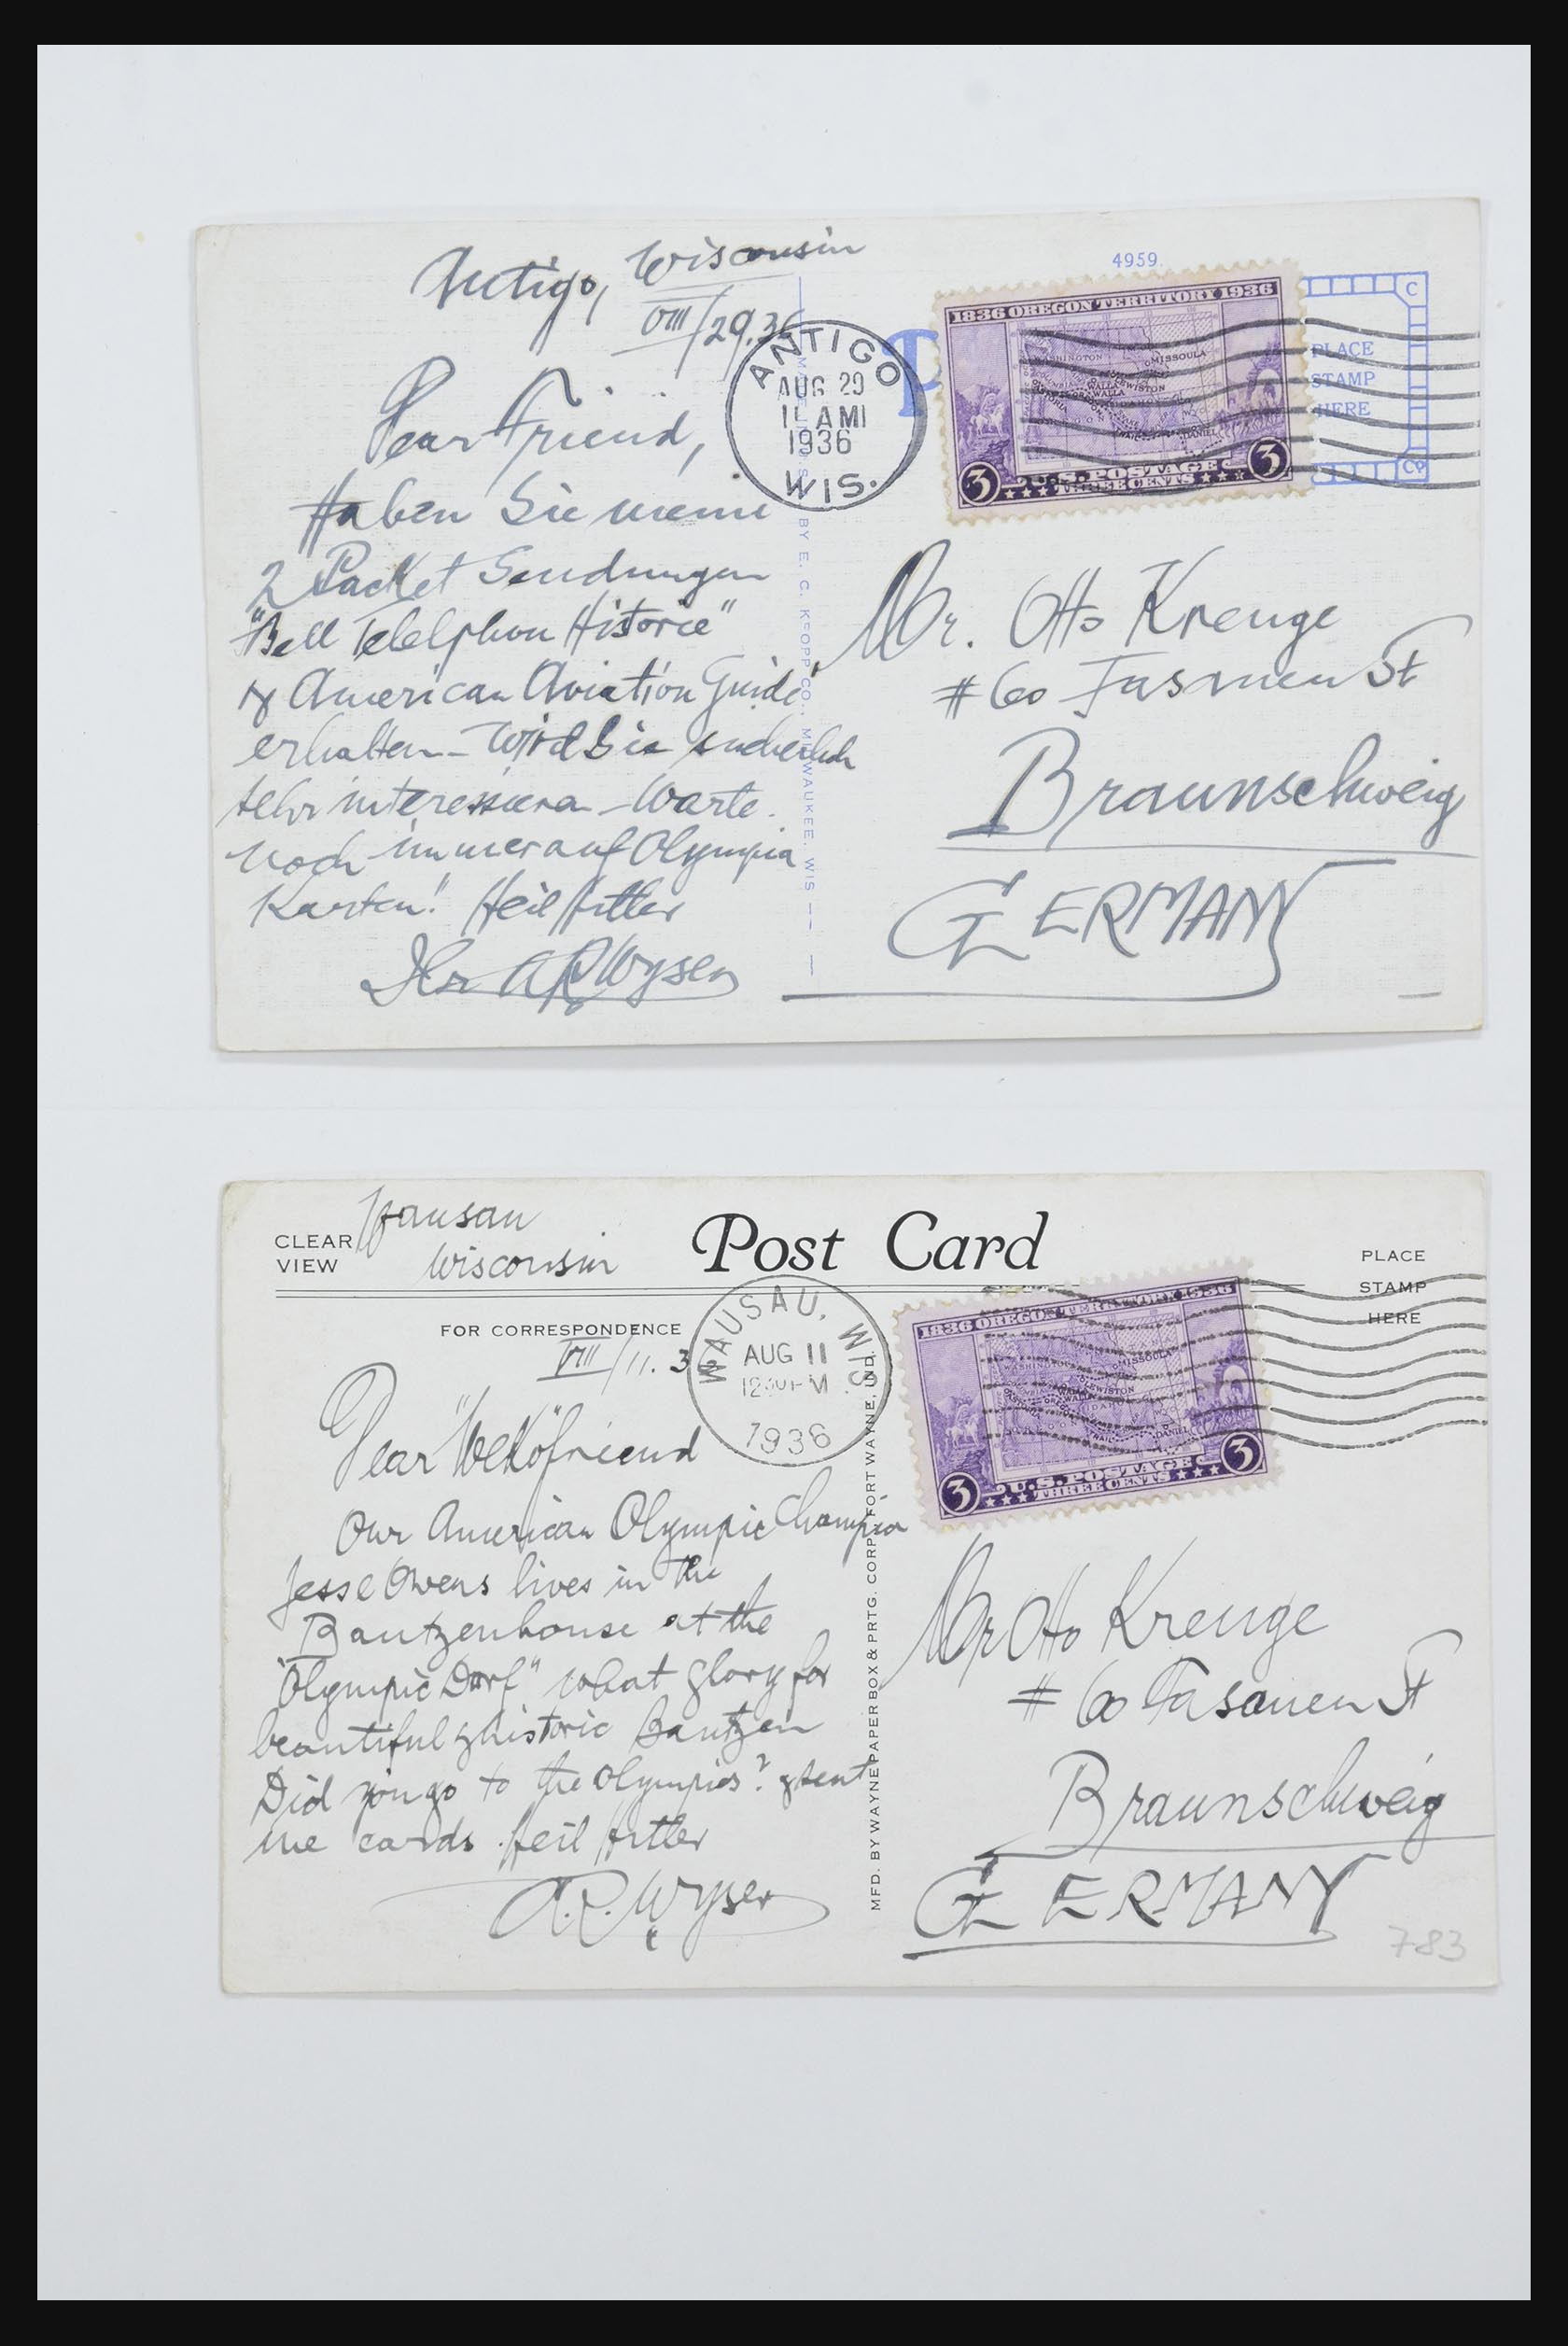 Antigo, Wisconsin
VIII/29.36
4959
ANTIGO
AUG 29
11 AM
1936
WIS.
1836 OREGON TERRITORY 1936
WASHINGTON
MISSOULA
WALLA WALLA
LEWISTON
ASTORIA
DANIEL
3 U.S. POSTAGE 3
THREE CENTS
PLACE
STAMP
HERE
C
Co
Dear Friend,
Haben Sie meine
2 Packet Sendungen
"Bell Telelphon Historie"
& American Aviation Guide
erhalten - Wird Sie sicherlich
sehr interessieren - Warte
noch immer auf Olympia
Karten! Heil Hitler
Ihr A R Wyser
BY E. C. KROPP CO., MILWAUKEE, WIS
Mr. Otto Krenge
#60 Fasanen St
Braunschweig
GERMANY
CLEAR
VIEW
Wausau
Wisconsin
Post Card
PLACE
STAMP
HERE
FOR CORRESPONDENCE
VIII/11. 3
WAUSAU, WIS.
AUG 11
12 30 PM
1936
1836 OREGON TERRITORY 1936
WASHINGTON
MISSOULA
LEWISTON
WALLA WALLA
DANIEL
3 U.S. POSTAGE 3
THREE CENTS
Dear "Weko" friend
Our American Olympic Champion
Jesse Owens lives in the
Bautzenhouse at the
"Olympic Dorf" what glory for
beautiful & historic Bautzen
Did you go to the Olympics? & sent
me cards. Heil Hitler
A.R. Wyser
MFD. BY WAYNE PAPER BOX & PRTG. CORP., FORT WAYNE, IND.
Mr Otto Krenge
#60 Fasanen St
Braunschweig
GERMANY
783